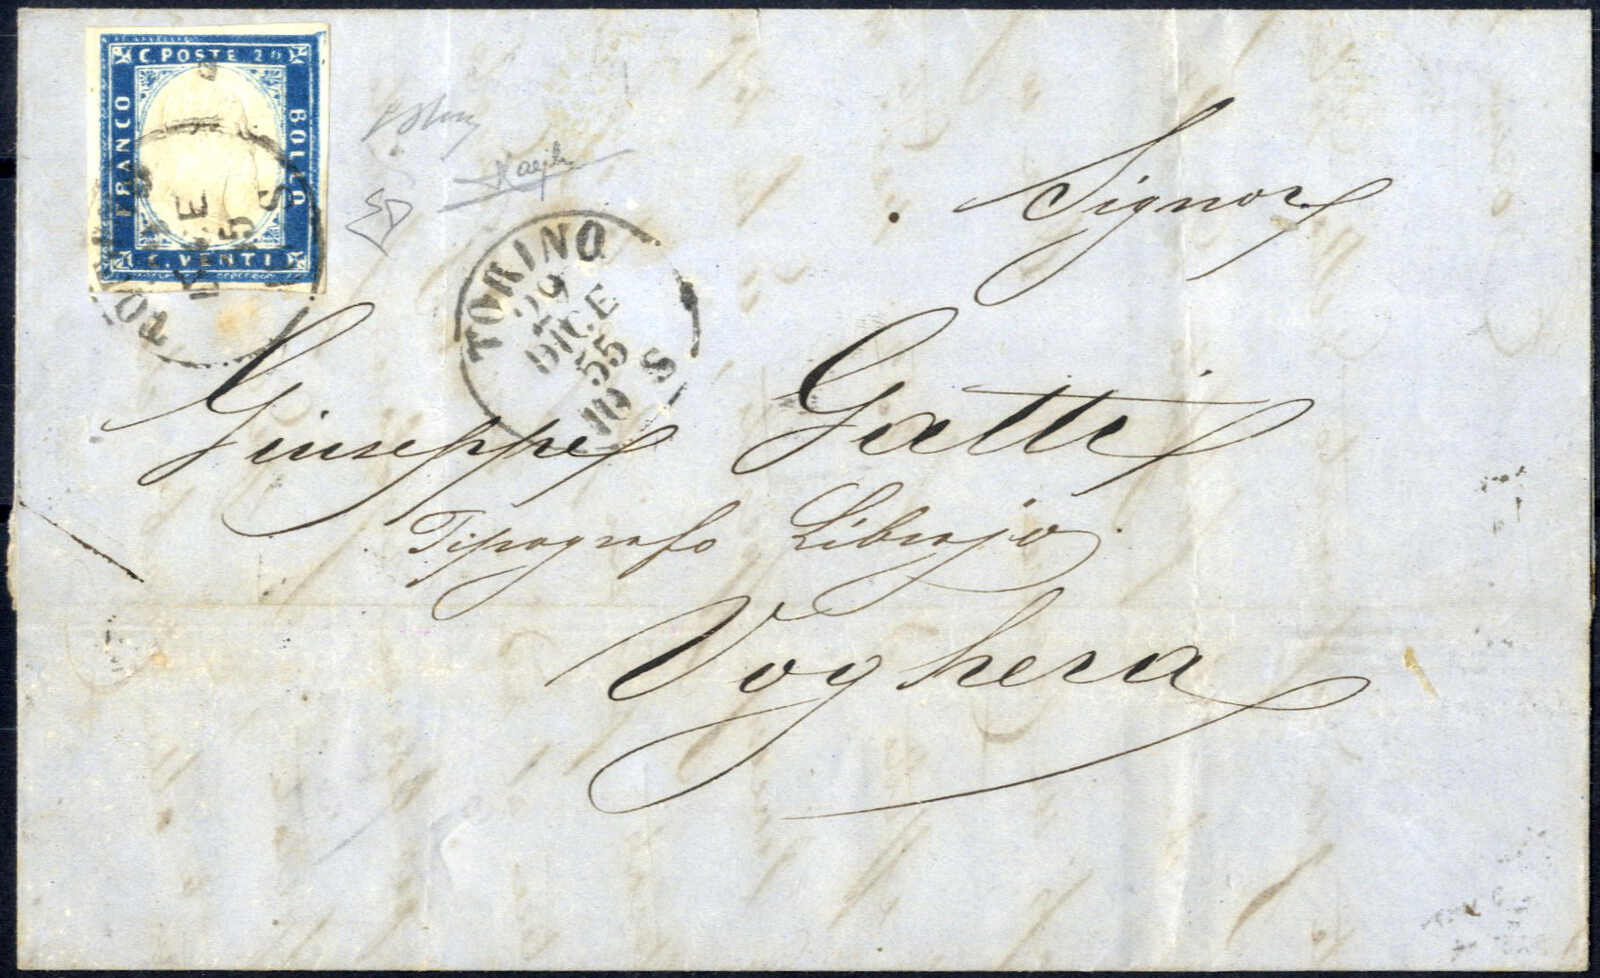 C. POSTE 20
FRANCO
BOLLO
C. VENTI
TORINO
29
DICE
55
10 S
Signor
Giuseppe Gatti
Tipografo Librajo
Voghera